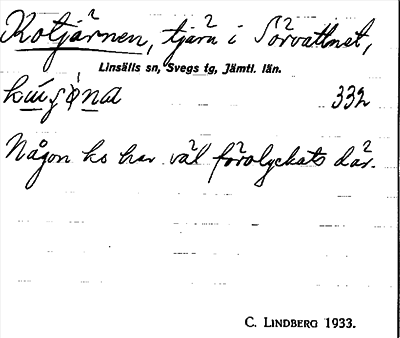 Kotjärnen, tjärn i Sörvattnet,
Linsälls sn, Svegs tg, Jämtl. län.
332
Någon ko har väl förolyckats där.
C. LINDBERG 1933.